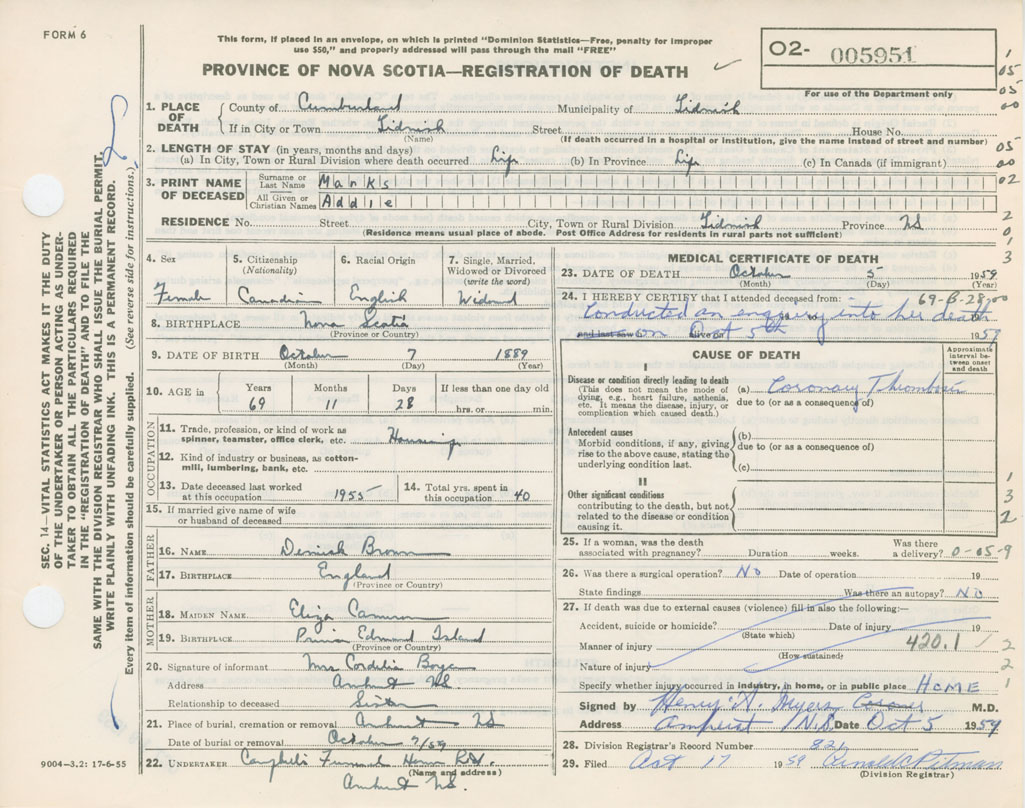 FORM 6
This form, if placed in an envelope, on which is printed "Dominion Statistics—Free, penalty for improper
use $50," and properly addressed will pass through the mail "FREE"
PROVINCE OF NOVA SCOTIA—REGISTRATION OF DEATH
O2- 005951
For use of the Department only
1. PLACE OF DEATH
County of Cumberland Municipality of Tidnish
If in City or Town Tidnish Street House No.
(Name) (If death occurred in a hospital or institution, give the name instead of street and number)
2. LENGTH OF STAY (in years, months and days)
(a) In City, Town or Rural Division where death occurred Life (b) In Province Life (c) In Canada (if immigrant)
3. PRINT NAME OF DECEASED
Surname or Last Name Marks
All Given or Christian Names Addie
RESIDENCE No. Street City, Town or Rural Division Tidnish Province NS
(Residence means usual place of abode. Post Office Address for residents in rural parts not sufficient)
4. Sex
Female
5. Citizenship
(Nationality)
Canadian
6. Racial Origin
English
7. Single, Married,
Widowed or Divorced
(write the word)
Widowed
8. BIRTHPLACE Nova Scotia
(Province or Country)
9. DATE OF BIRTH October 7 1889
(Month) (Day) (Year)
10. AGE in
Years Months Days If less than one day old
69 11 28 hrs. or min.
OCCUPATION
11. Trade, profession, or kind of work as
spinner, teamster, office clerk, etc. Housewife
12. Kind of industry or business, as cotton-
mill, lumbering, bank, etc.
13. Date deceased last worked
at this occupation 1955
14. Total yrs. spent in
this occupation 40
15. If married give name of wife
or husband of deceased
FATHER
16. NAME Brown
17. BIRTHPLACE England
(Province or Country)
MOTHER
18. MAIDEN NAME Eliza Cameron
19. BIRTHPLACE Prince Edward Island
(Province or Country)
20. Signature of informant Mrs Cordelia Boyce
Address Amherst NS.
Relationship to deceased Sister
21. Place of burial, cremation or removal Amherst NS
Date of burial or removal October 7/59
22. UNDERTAKER Campbell's Funeral Home
(Name and address)
Amherst NS.
9004-3.2: 17-6-55
MEDICAL CERTIFICATE OF DEATH
23. DATE OF DEATH October 5 1959
(Month) (Day) (Year)
24. I HEREBY CERTIFY that I attended deceased from: 69-B-28,00
Conducted an enquiry into her death
and last saw on alive on Oct 5th 1959
CAUSE OF DEATH
Approximate
interval be-
tween onset
and death
I
Disease or condition directly leading to death
(This does not mean the mode of
dying, e.g., heart failure, asthenia,
etc. It means the disease, injury, or
complication which caused death.)
(a) Coronary Thrombosis
due to (or as a consequence of)
Antecedent causes
Morbid conditions, if any, giving
rise to the above cause, stating the
underlying condition last.
(b)
due to (or as a consequence of)
(c)
II
Other significant conditions
contributing to the death, but not
related to the disease or condition
causing it.
25. If a woman, was the death
associated with pregnancy? Duration weeks. Was there
a delivery? 0-05-9
26. Was there a surgical operation? NO Date of operation 19
State findings Was there an autopsy? NO
27. If death was due to external causes (violence) fill in also the following:—
Accident, suicide or homicide? Date of injury 19
(State which)
Manner of injury 420.1
(How sustained)
Nature of injury
Specify whether injury occurred in industry, in home, or in public place HOME
Signed by Henry A. Myers Coroner M.D.
Address Amherst N.S. Date Oct 5 1959
28. Division Registrar's Record Number 821
29. Filed Oct 17 1959 Arnold C Pitman
(Division Registrar)
SEC. 14—VITAL STATISTICS ACT MAKES IT THE DUTY
OF THE UNDERTAKER OR PERSON ACTING AS UNDER-
TAKER TO OBTAIN ALL THE PARTICULARS REQUIRED
IN THE "REGISTRATION OF DEATH" AND FILE THE
SAME WITH THE DIVISION REGISTRAR WHO SHALL ISSUE THE BURIAL PERMIT.
WRITE PLAINLY WITH UNFADING INK. THIS IS A PERMANENT RECORD.
Every item of information should be carefully supplied. (See reverse side for instructions.)
1
05
05
00
05
00
02
2
0
3
1
3
2
2
2
1